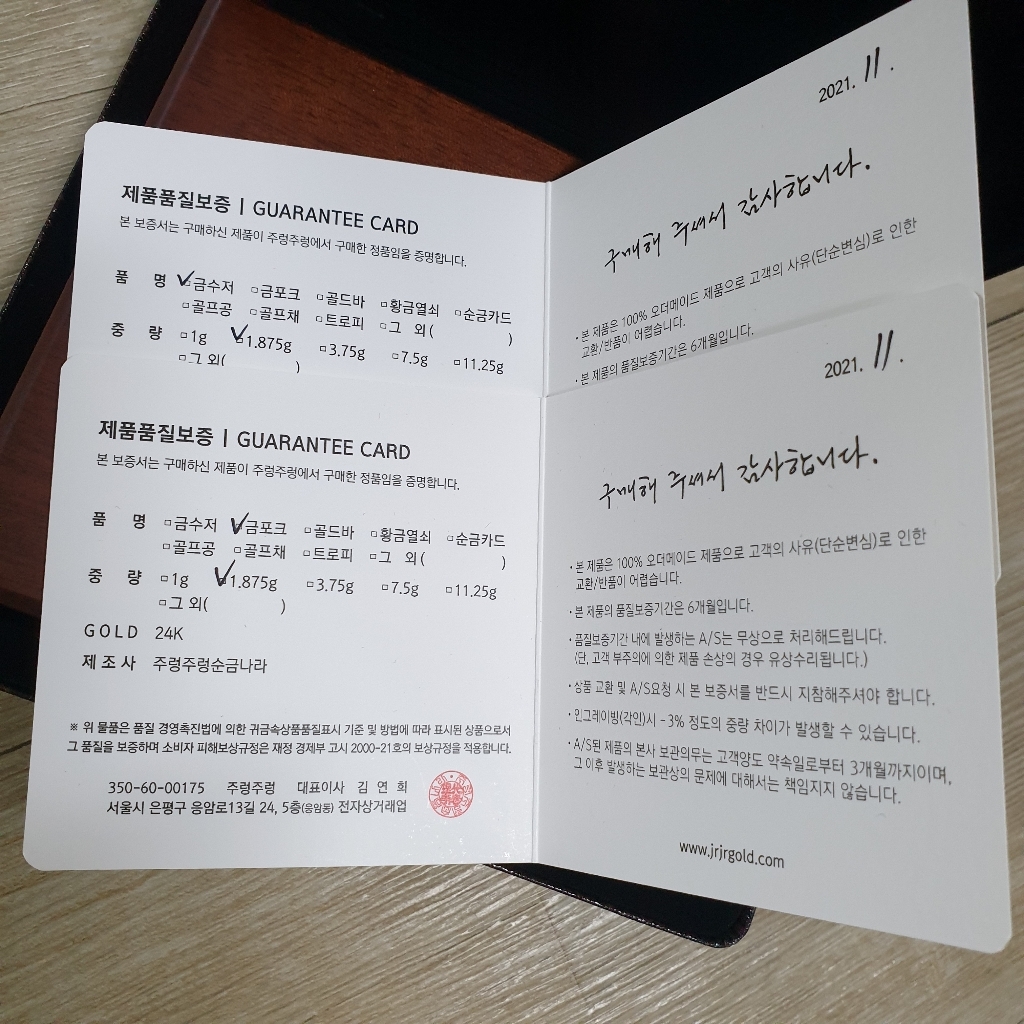 제품품질보증 | GUARANTEE CARD
본 보증서는 구매하신 제품이 주렁주렁에서 구매한 정품임을 증명합니다.
품 명 ✓금수저 □금포크 □골드바 □황금열쇠 □순금카드
□골프공 □골프채 □트로피 □그 외( )
중 량 □1g ✓1.875g □3.75g □7.5g □11.25g
□그 외( )
2021. 11.
구매해 주셔서 감사합니다.
· 본 제품은 100% 오더메이드 제품으로 고객의 사유(단순변심)로 인한
교환/반품이 어렵습니다.
· 본 제품의 품질보증기간은 6개월입니다.
제품품질보증 | GUARANTEE CARD
본 보증서는 구매하신 제품이 주렁주렁에서 구매한 정품임을 증명합니다.
품 명 □금수저 ✓금포크 □골드바 □황금열쇠 □순금카드
□골프공 □골프채 □트로피 □그 외( )
중 량 □1g ✓1.875g □3.75g □7.5g □11.25g
□그 외( )
GOLD 24K
제조사 주렁주렁순금나라
※ 위 물품은 품질 경영촉진법에 의한 귀금속상품품질표시 기준 및 방법에 따라 표시된 상품으로서
그 품질을 보증하며 소비자 피해보상규정은 재정 경제부 고시 2000-21호의 보상규정을 적용합니다.
350-60-00175 주렁주렁 대표이사 김 연 희
서울시 은평구 응암로13길 24, 5층(응암동) 전자상거래업
2021. 11.
구매해 주셔서 감사합니다.
· 본 제품은 100% 오더메이드 제품으로 고객의 사유(단순변심)로 인한
교환/반품이 어렵습니다.
· 본 제품의 품질보증기간은 6개월입니다.
· 품질보증기간 내에 발생하는 A/S는 무상으로 처리해드립니다.
(단, 고객 부주의에 의한 제품 손상의 경우 유상수리됩니다.)
· 상품 교환 및 A/S요청 시 본 보증서를 반드시 지참해주셔야 합니다.
· 인그레이빙(각인)시 -3% 정도의 중량 차이가 발생할 수 있습니다.
· A/S된 제품의 본사 보관의무는 고객양도 약속일로부터 3개월까지이며,
그 이후 발생하는 보관상의 문제에 대해서는 책임지지 않습니다.
www.jrjrgold.com